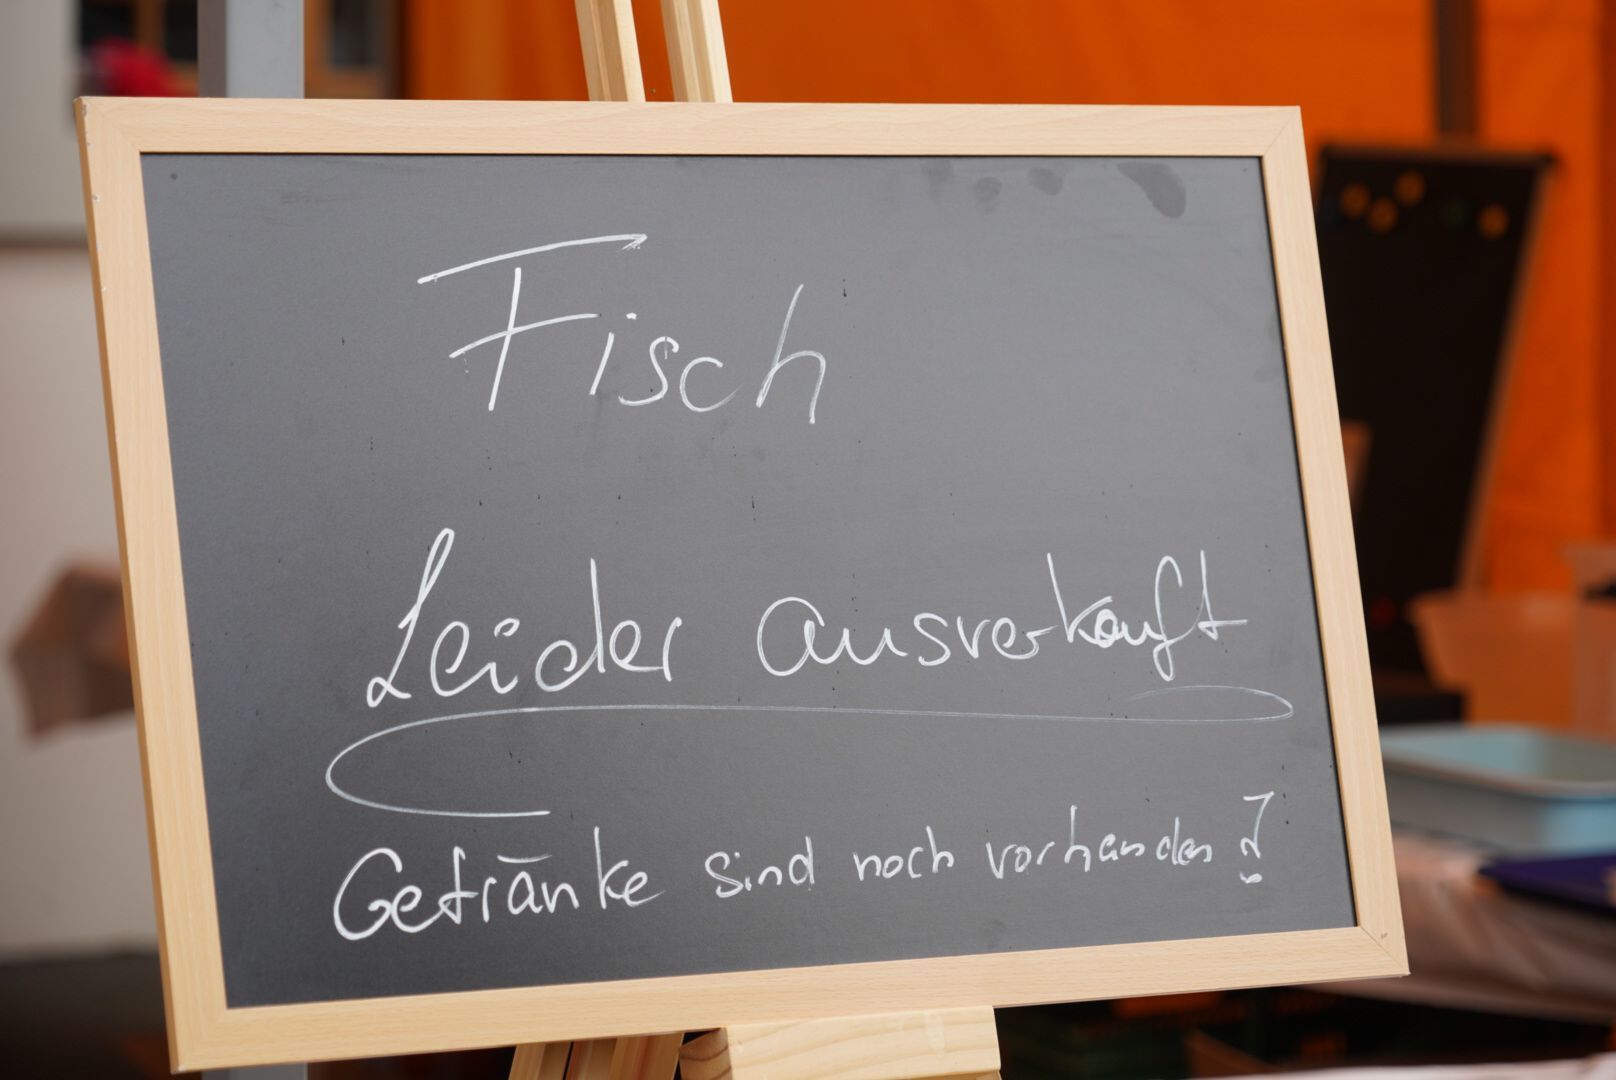 Fisch
Leider ausverkauft
Getränke sind noch vorhanden!